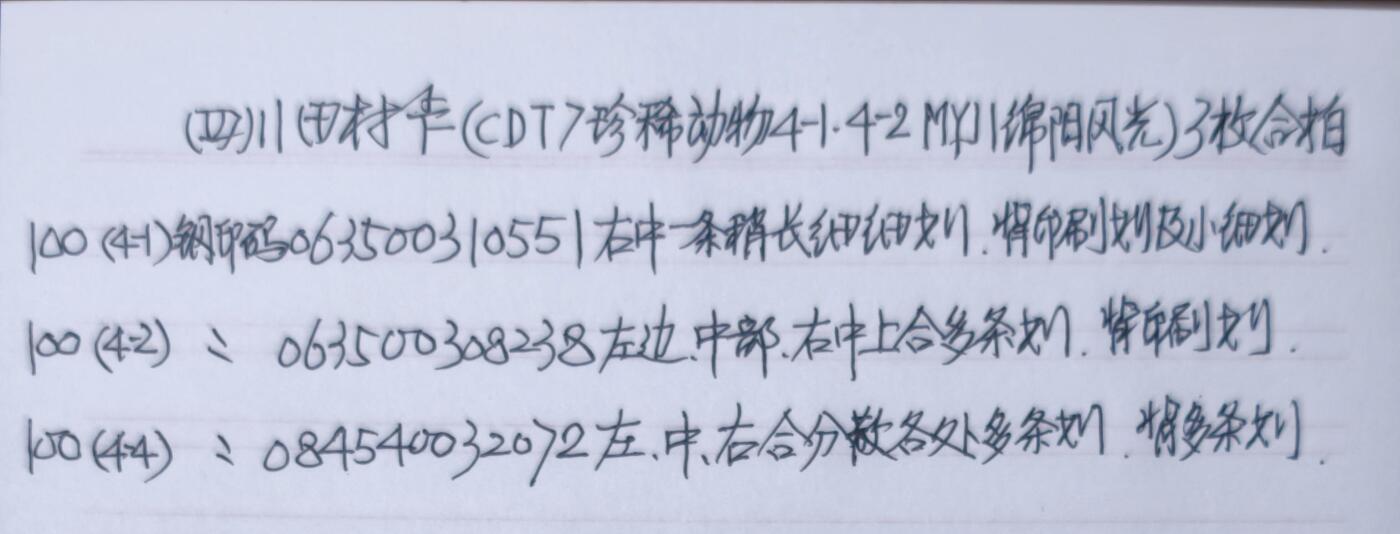 (四)川田村卡(CDT7珍稀动物4-1.4-2 MYJ1绵阳风光)3枚合拍
100(4-1)钢印码063500310551右中一条稍长细细划.背印刷划及小细划.
100(4-2) 〻 063500308238左边.中部.右中上合多条划.背印刷划.
100(4-4) 〻 084540032072左.中、右合分散各处多条划.背多条划.